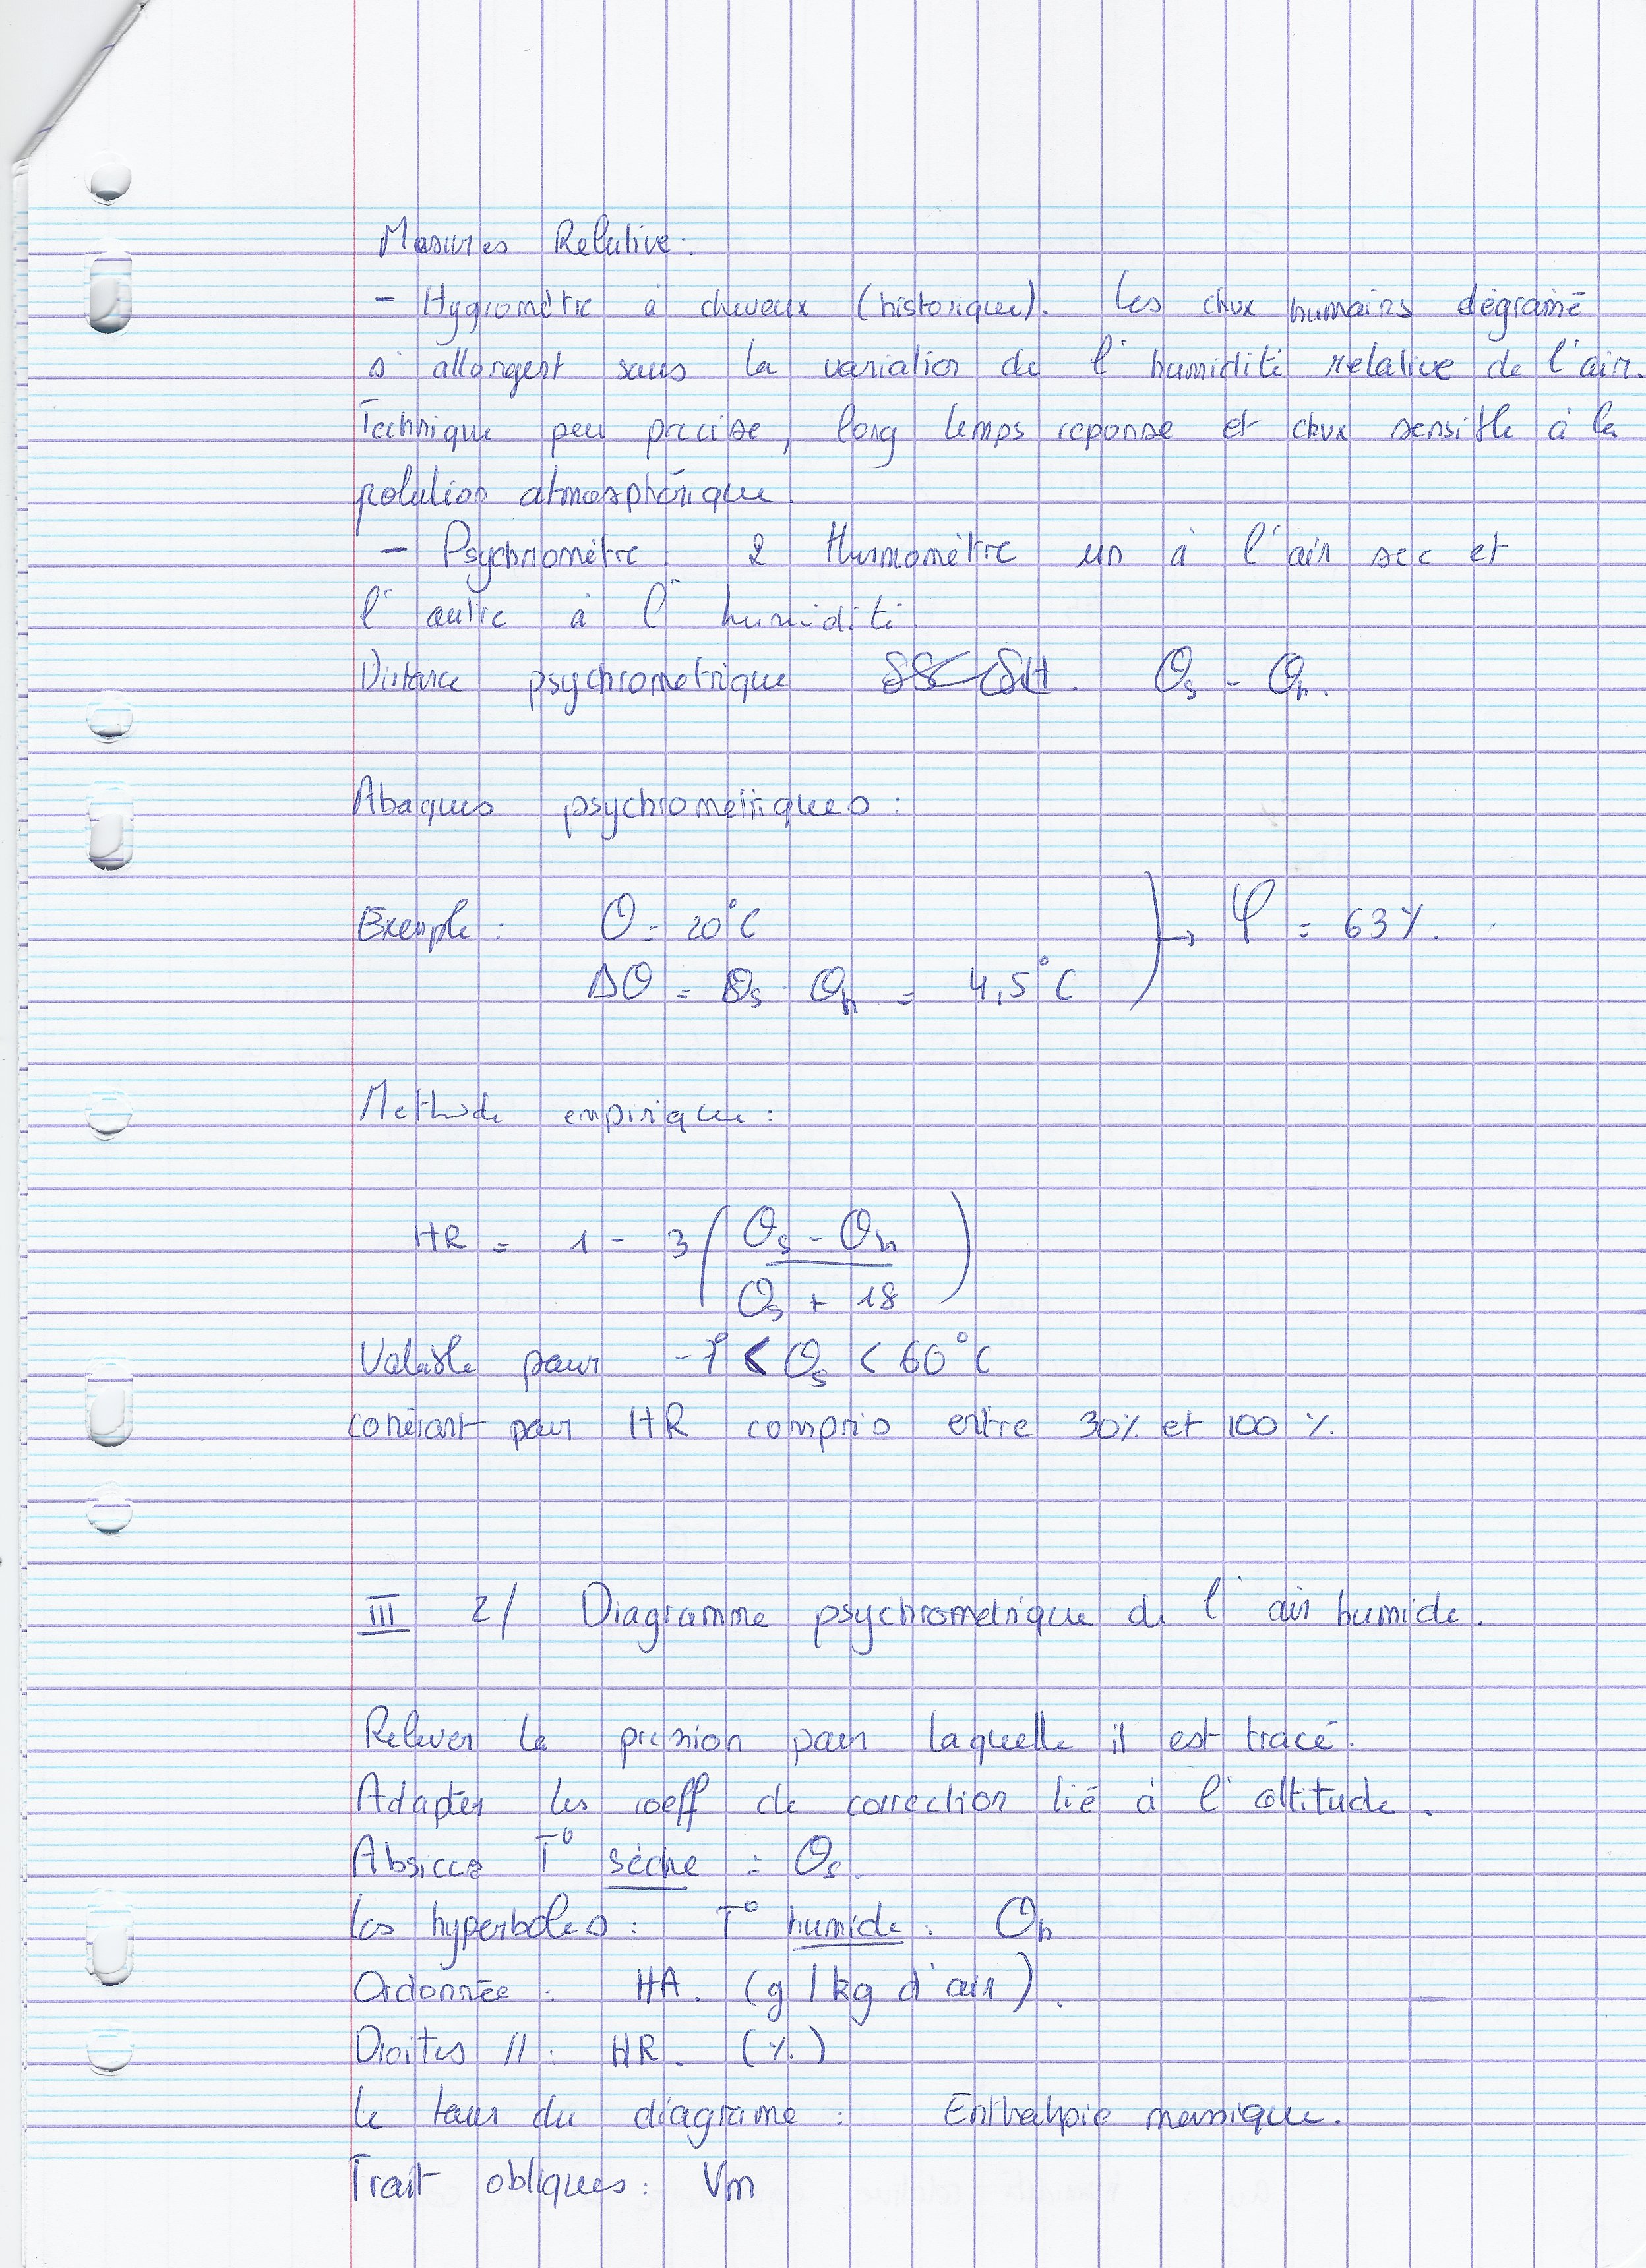 Mesures Relative.
- Hygromètre à cheveux (historique). Les chvx humains dégraissé
s'allongent sous la variation de l'humidité relative de l'air.
Technique peu précise, long temps réponse et chvx sensible à la
polution atmosphérique.
- Psychromètre 2 thermomètre un à l'air sec et
l'autre à l'humidité.
Distance psychrometrique Θs - Θh.
Abaques psychrometriques :
Exemple : Θ = 20°C
ΔΘ = Θs - Θh = 4,5°C } → φ = 63%.
Methode empirique :
HR = 1 - 3 ( Θs - Θh
Θs + 18 )
Valable pour -7° < Θs < 60°C
pour HR compris entre 30% et 100 %.
III 2/ Diagramme psychrometrique de l'air humide.
Relever la pression pour laquelle il est tracé.
Adapter les coeff de correction lié à l'altitude.
Absicce T° sèche : Θs.
Les hyperboles : T° humide : Θh
Ordonnée : HA. (g/kg d'air).
Droites // : HR. (%)
Le tour du diagrame : Enthalpie massique.
Trait obliques : Vm